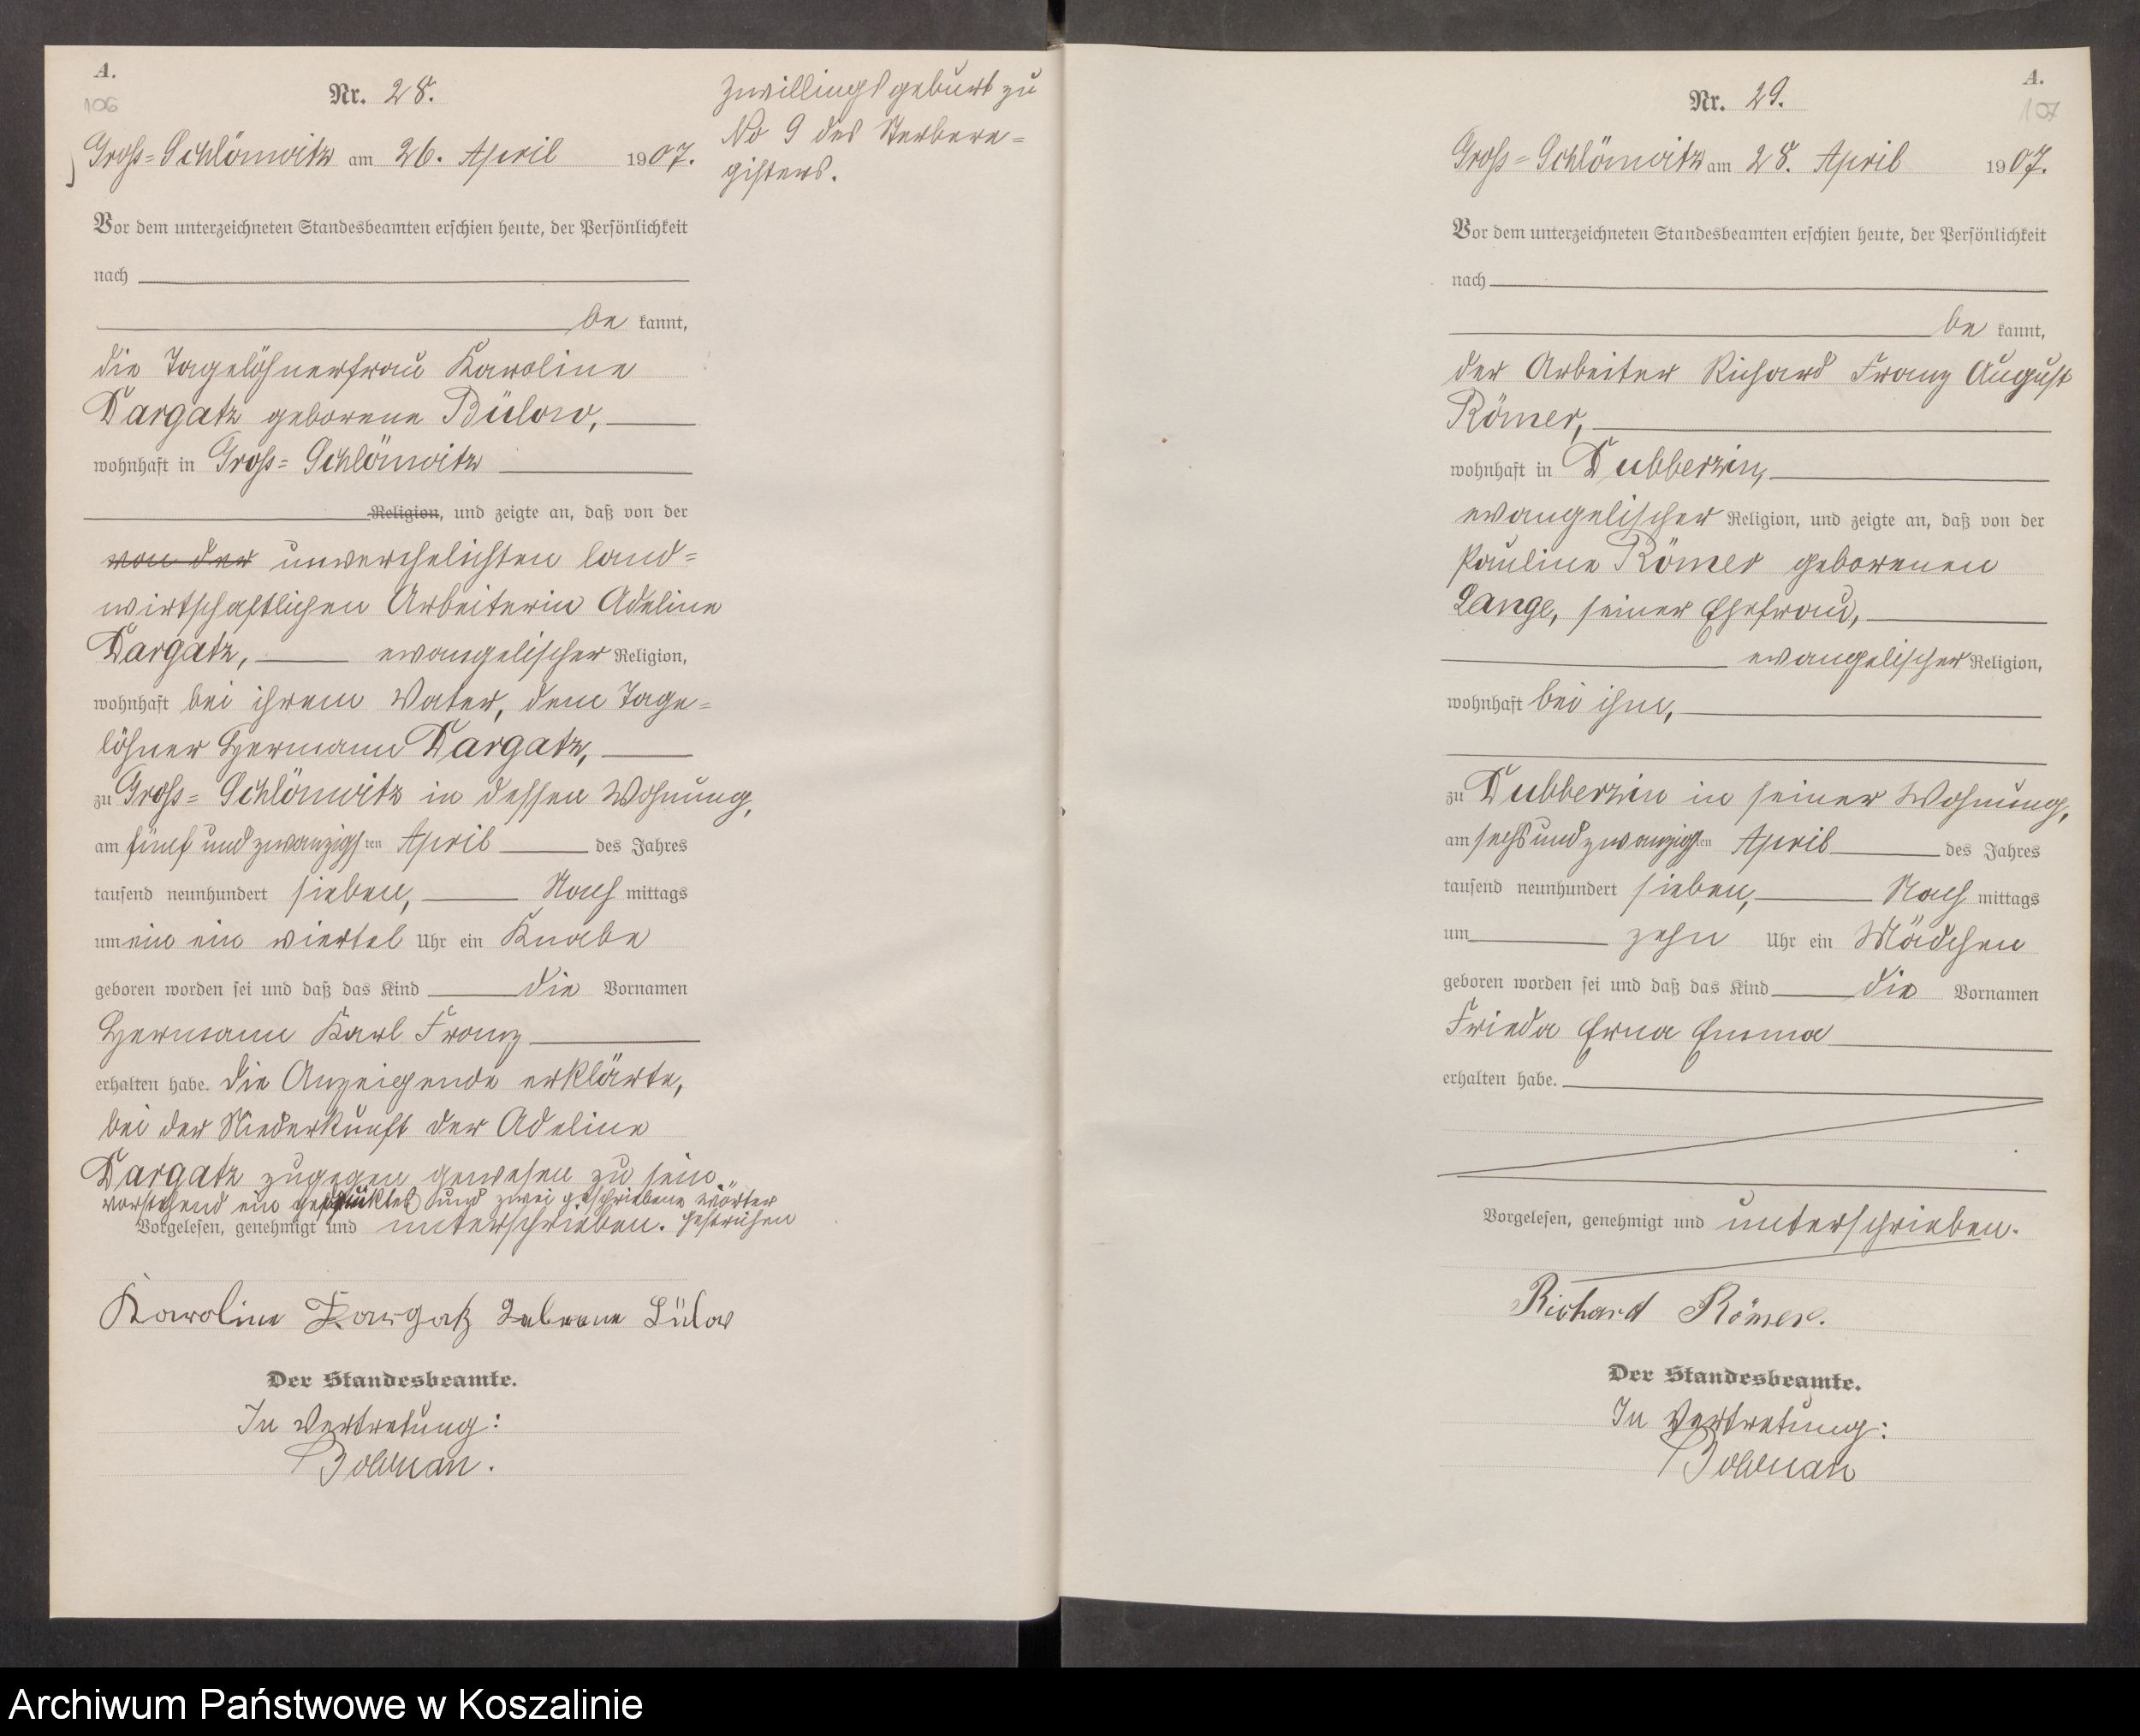 A.
106
Nr. 28.
Groß-Schlönwitz am 26. April 1907.
Zwillingsgeburt zu
No 9 des Sterbere=
gisters.
Vor dem unterzeichneten Standesbeamten erschien heute, der Persönlichkeit
nach
be kannt,
die Tagelöhnerfrau Karoline
Dargatz geborene Bülow,
wohnhaft in Groß=Schlönwitz
Religion, und zeigte an, daß von der
von der unverehelichten land=
wirtschaftlichen Arbeiterin Adeline
Dargatz, evangelischer Religion,
wohnhaft bei ihrem Vater, dem Tage=
löhner Hermann Dargatz,
zu Groß=Schlönwitz in dessen Wohnung,
am fünf und zwanzigsten April des Jahres
tausend neunhundert sieben, Nach mittags
um ein ein viertel Uhr ein Knabe
geboren worden sei und daß das Kind die Vornamen
Hermann Karl Franz
erhalten habe. Die Anzeigende erklärte,
bei der Niederkunft der Adeline
Dargatz zugegen gewesen zu sein.
Vorstehend ein gedrucktes und zwei geschriebene Wörter
gestrichen
Vorgelesen, genehmigt und unterschrieben.
Karoline Dargatz Geborene Bülow
Der Standesbeamte.
In Vertretung:
A.
107
Nr. 29.
Groß=Schlönwitz am 28. April 1907.
Vor dem unterzeichneten Standesbeamten erschien heute, der Persönlichkeit
nach
be kannt,
der Arbeiter Richard Franz August
Römer,
wohnhaft in Dubberzin,
evangelischer Religion, und zeigte an, daß von der
Pauline Römer geborenen
Lange, seiner Ehefrau,
evangelischer Religion,
wohnhaft bei ihm,
zu Dubberzin in seiner Wohnung,
am sechs und zwanzigsten April des Jahres
tausend neunhundert sieben, Nach mittags
um zehn Uhr ein Mädchen
geboren worden sei und daß das Kind die Vornamen
Frieda Erna Emma
erhalten habe.
Vorgelesen, genehmigt und unterschrieben.
Richard Römer.
Der Standesbeamte.
In Vertretung:
Archiwum Państwowe w Koszalinie